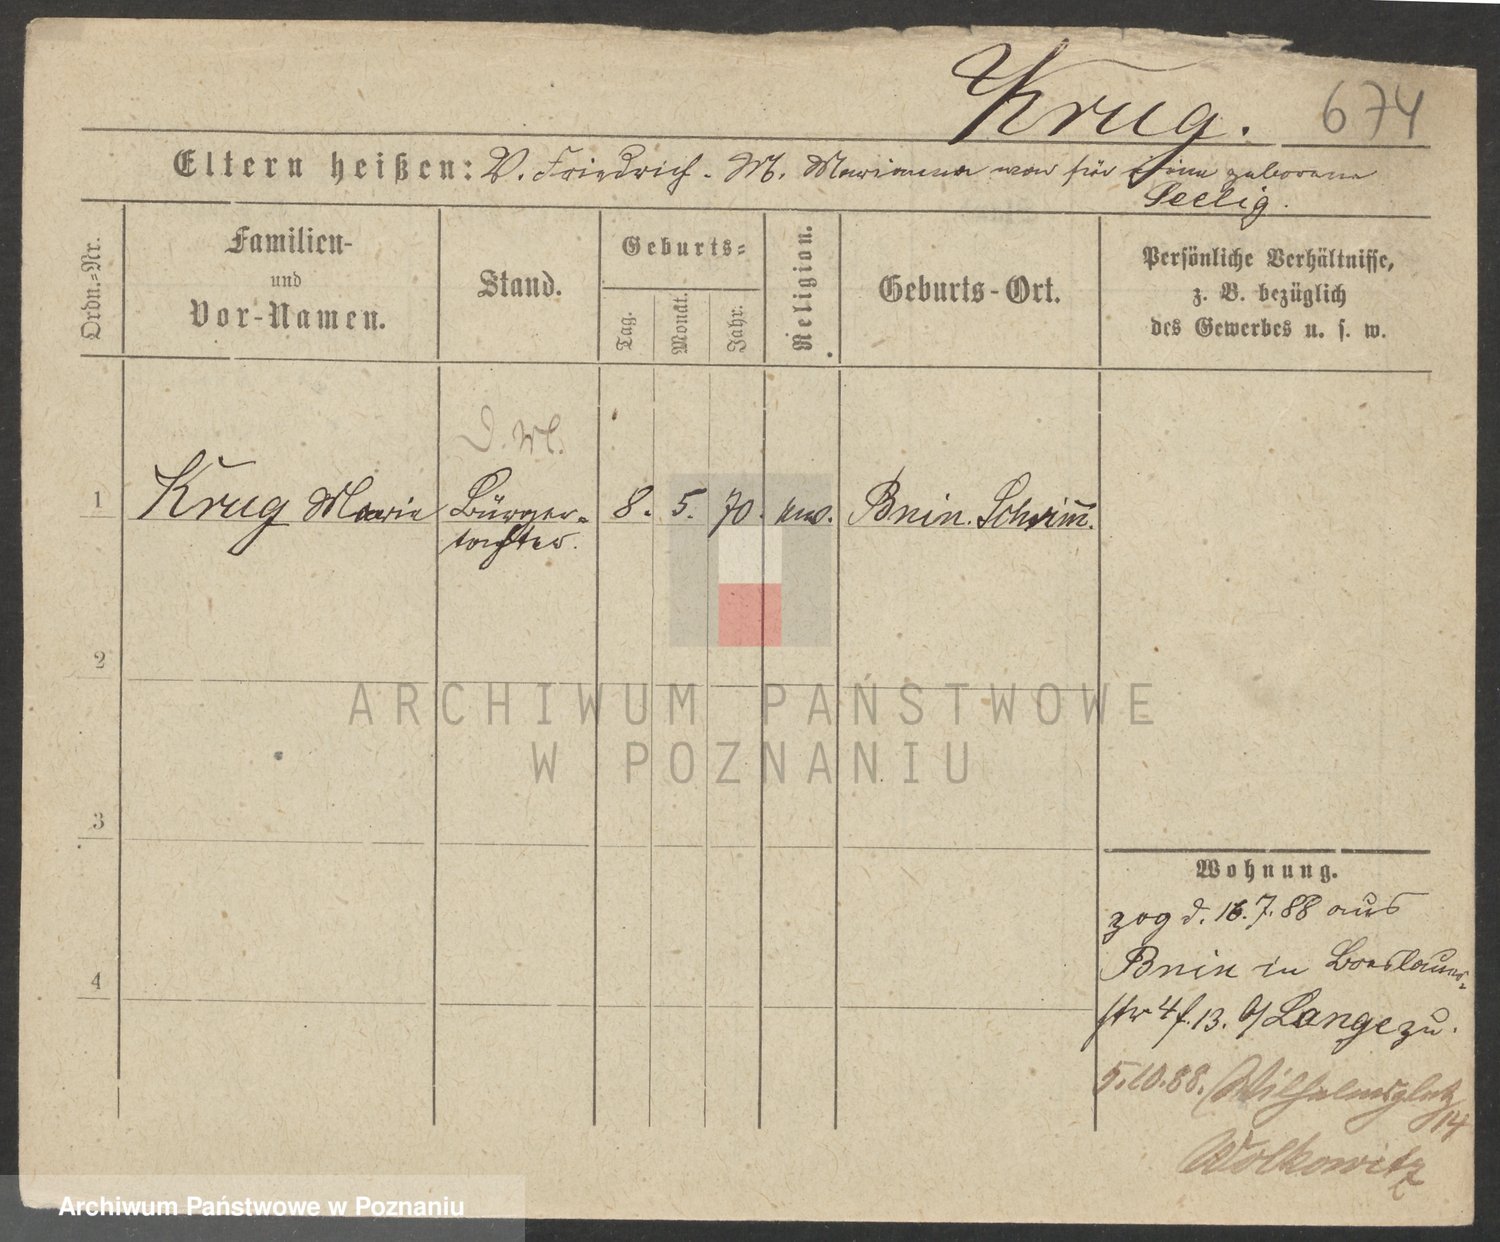 Krug. 674
Eltern heißen: V. Friedrich. M. Marianna geborene
Seelig.
Ordn.-Nr.
Familien-
und
Vor-Namen.
Stand.
Geburts-
Tag.
Monat.
Jahr.
Religion.
Geburts-Ort.
Persönliche Verhältnisse,
z. B. bezüglich
des Gewerbes u. s. w.
D. M.
1 Krug Marie Bürger- 8. 5. 70. Bnin. Schrimm.
tochter.
2
3
4
Wohnung.
zog d. 16.7.88 aus
Bnin in Breslauer-
str 4 f. 13. b/ Lange zu.
5.10.88. Wilhelmsplatz
14
Wolkowitz
ARCHIWUM PAŃSTWOWE
W POZNANIU
Archiwum Państwowe w Poznaniu